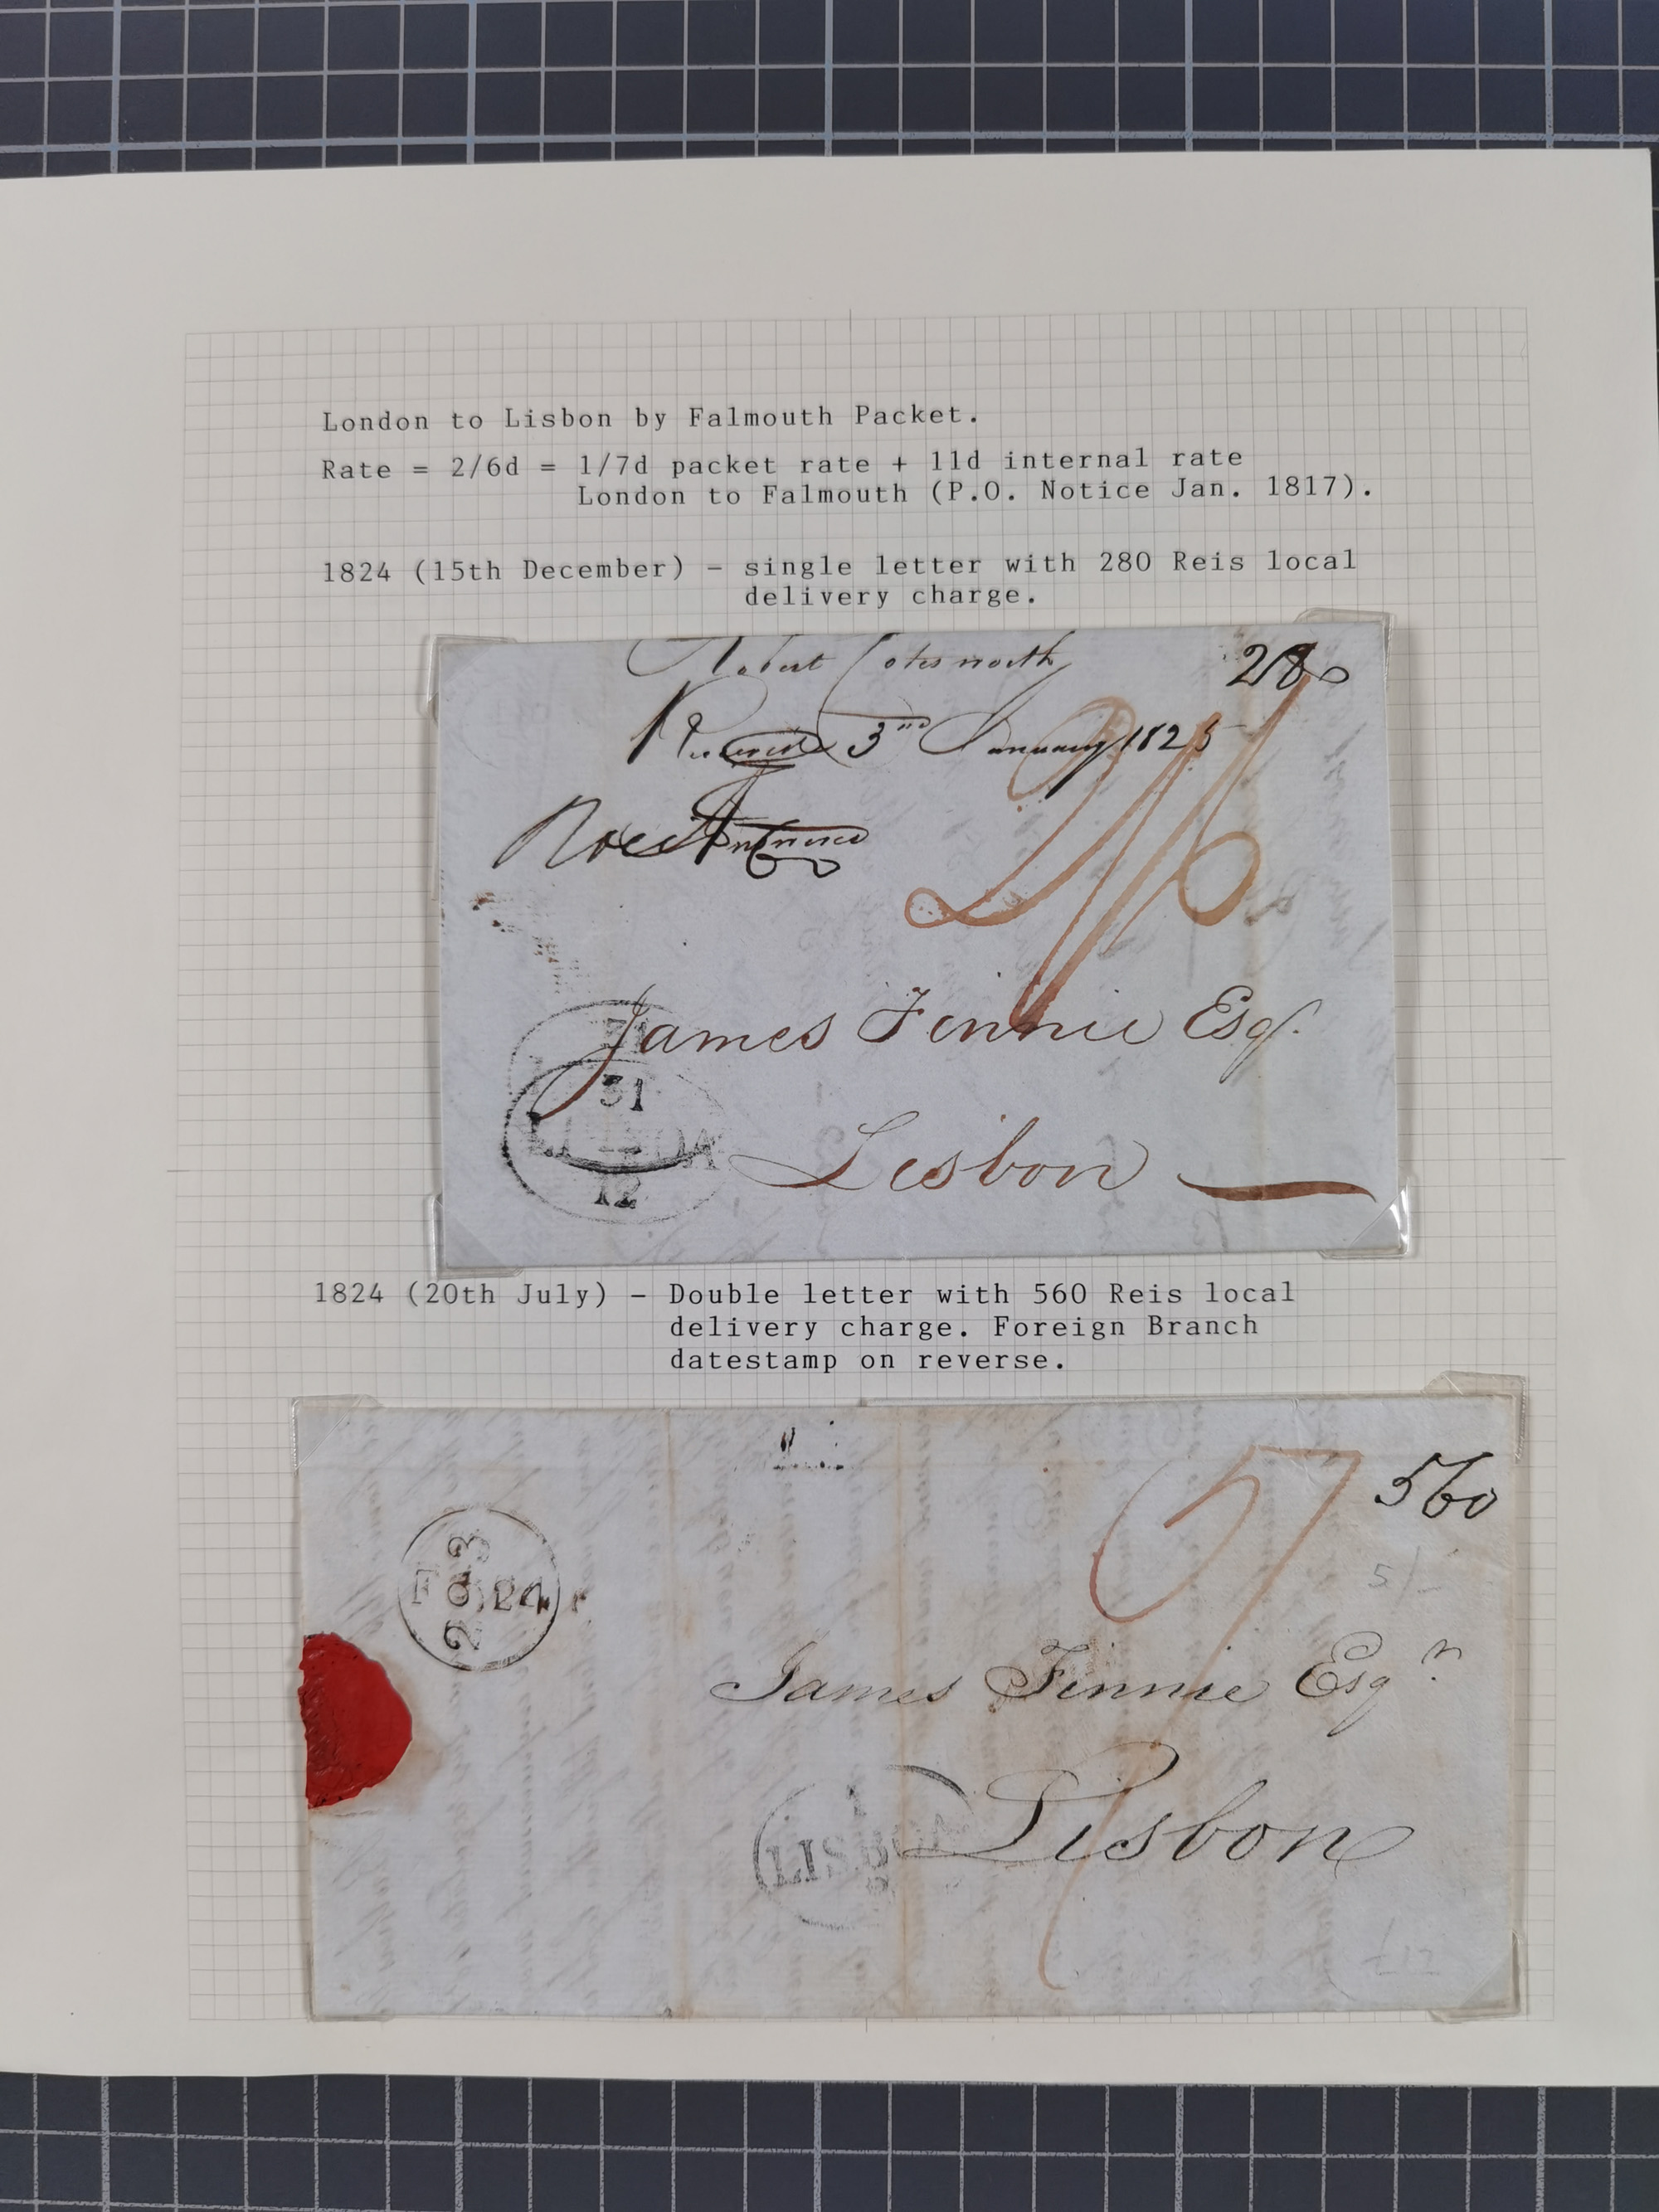 London to Lisbon by Falmouth Packet.
Rate = 2/6d = 1/7d packet rate + 11d internal rate
London to Falmouth (P.O. Notice Jan. 1817).
1824 (15th December) – single letter with 280 Reis local
delivery charge.
Robert Cotesworth
280
Received 3nd January 1825
2/6
James Finnie Esq.
31
31
LISBOA
12
Lisbon
1824 (20th July) – Double letter with 560 Reis local
delivery charge. Foreign Branch
datestamp on reverse.
560
5/
5/-
F 24
James Finnie Esqr.
1
LISBOA
8
Lisbon